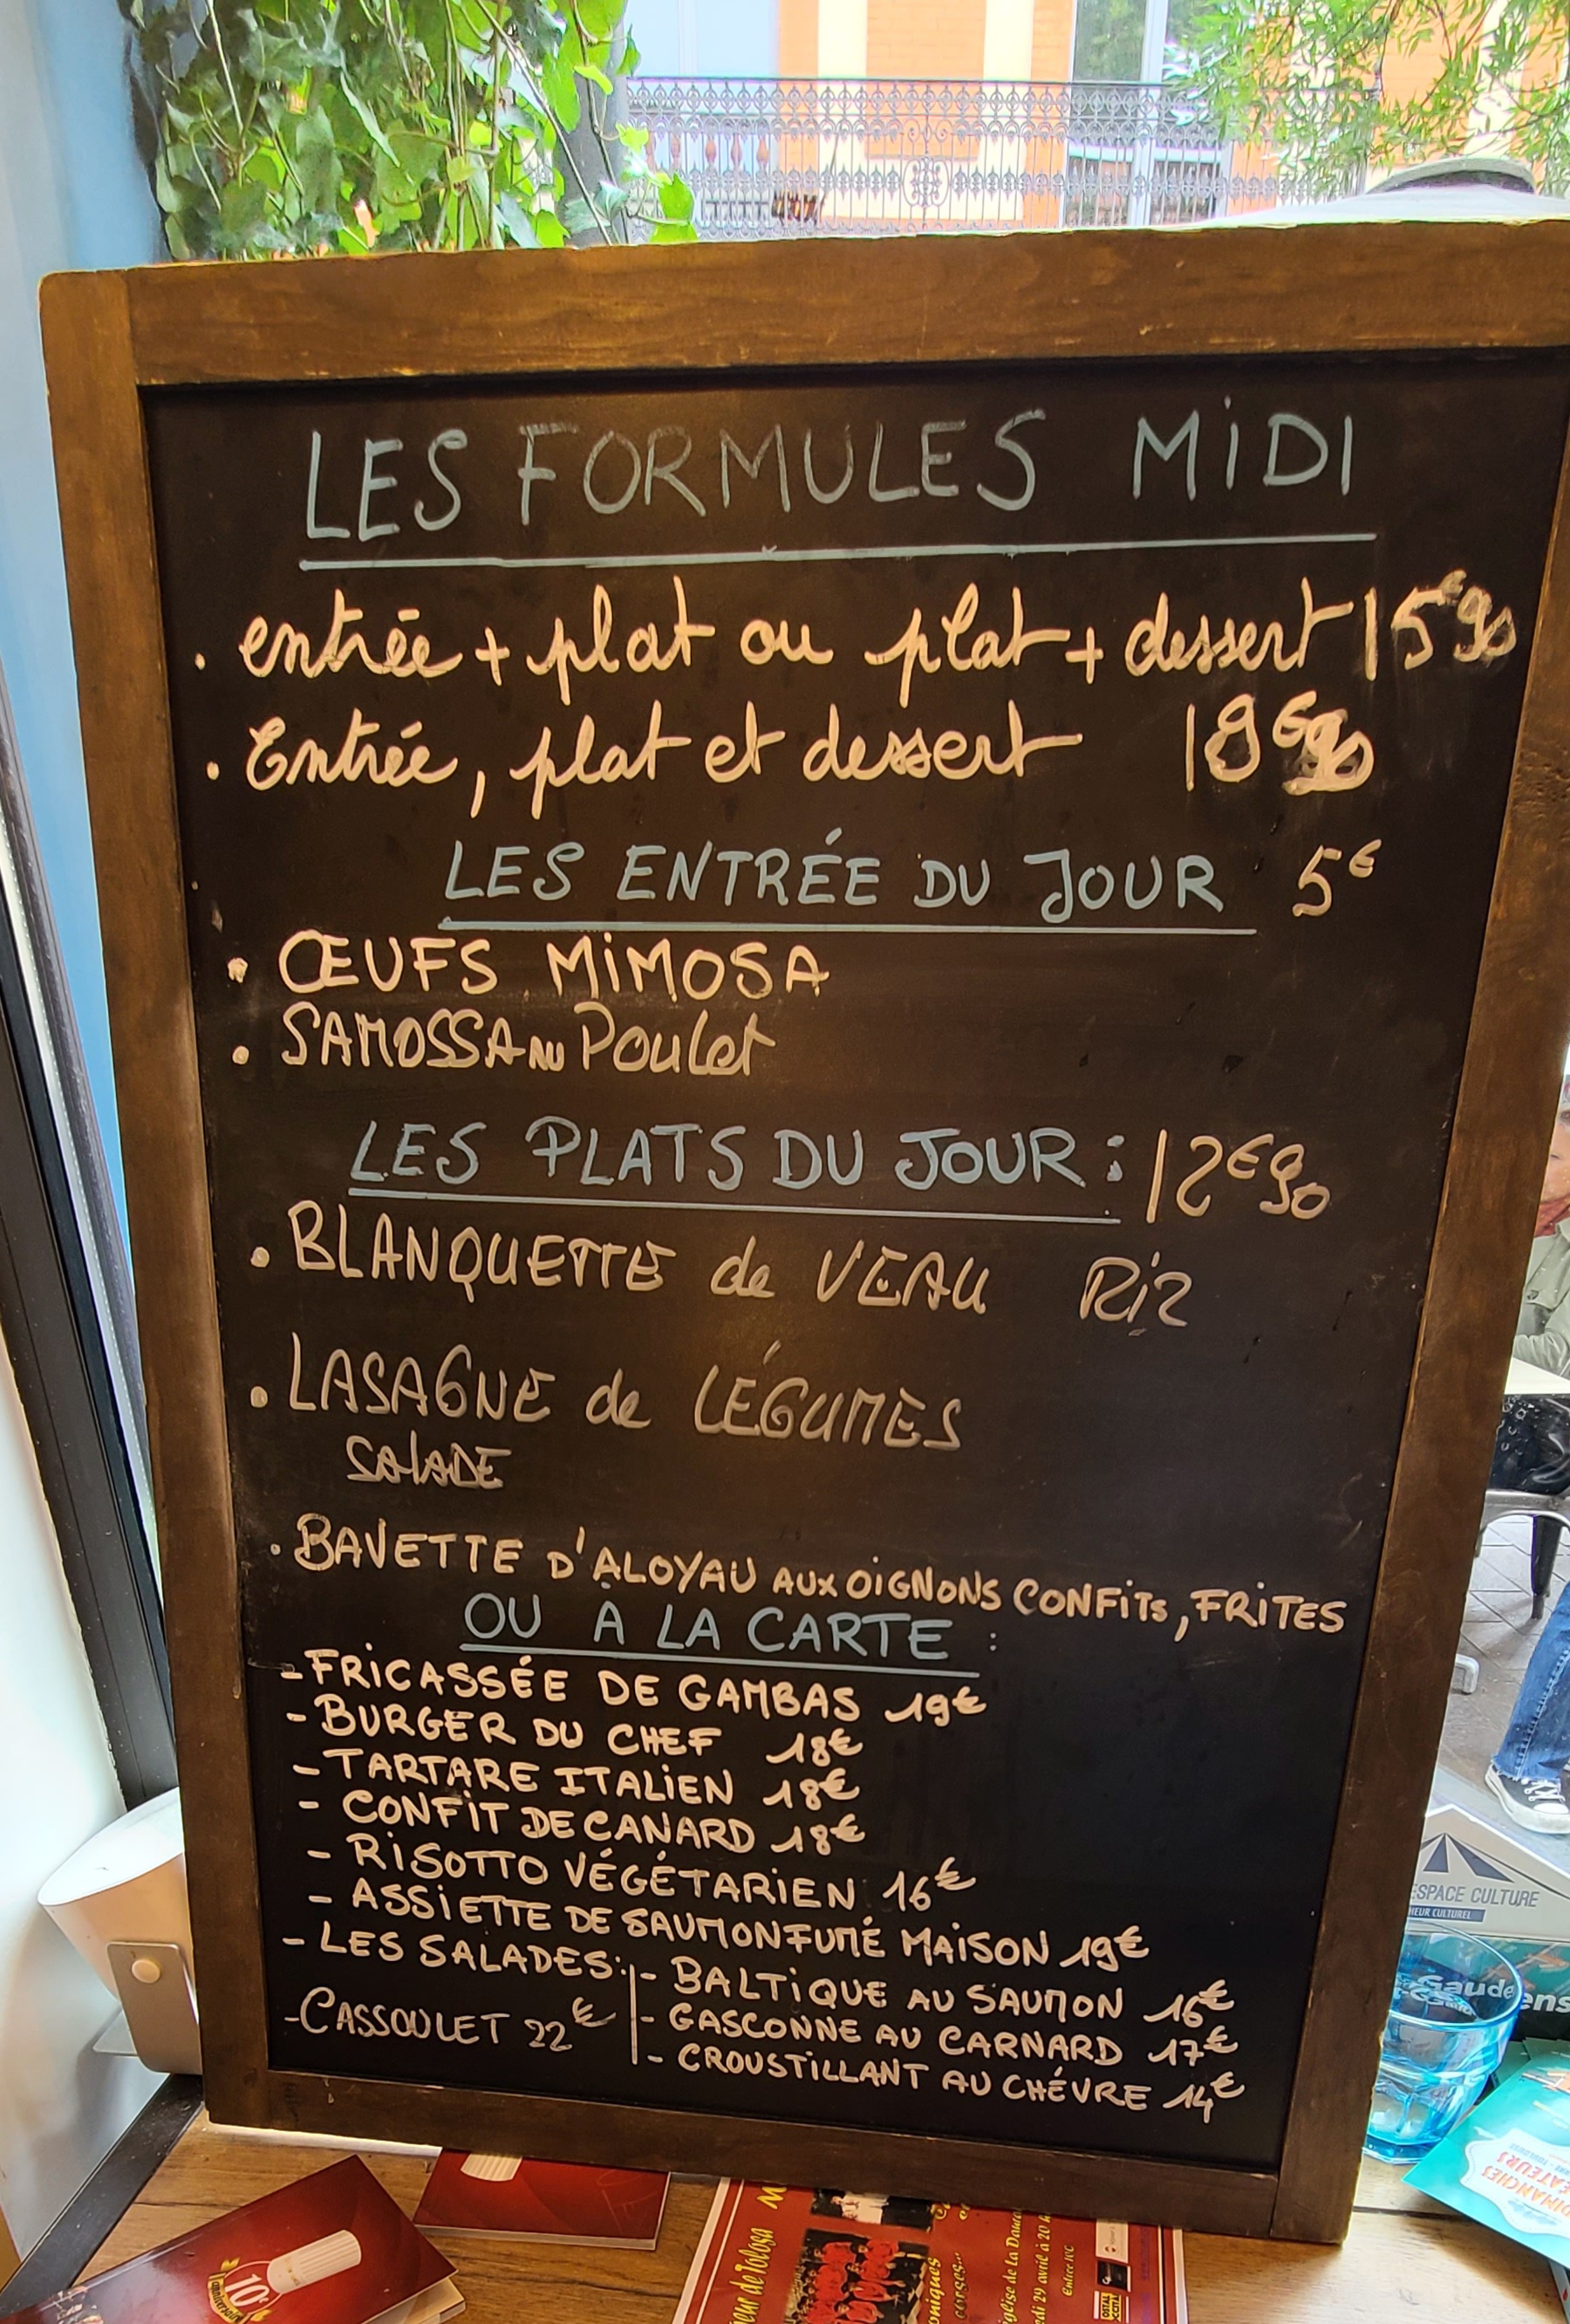 LES FORMULES MiDI
. entrée + plat ou plat + dessert 15€90
. Entrée, plat et dessert 18€90
LES ENTRÉE DU JOUR 5€
• ŒUFS MiMOSA
• SAMOSSA AU Poulet
LES PLATS DU JOUR : 12€90
• BLANQUETTE de VEAU RiZ
• LASAGNE de LÉGUMES
SALADE
• BAVETTE D'ALOYAU AUX OiGNONS CONFiTS, FRiTES
OU À LA CARTE :
- FRiCASSÉE DE GAMBAS 19€
- BURGER DU CHEF 18€
- TARTARE ITALIEN 18€
- CONFiT DE CANARD 18€
- RiSOTTO VÉGÉTARiEN 16€
- ASSiETTE DE SAUMON FUMÉ MAiSON 19€
- LES SALADES:
- BALTiQUE AU SAUMON 16€
- GASCONNE AU CARNARD 17€
- CROUSTiLLANT AU CHÉVRE 14€
- CASSOULET 22€
ESPACE CULTURE
HEUR CULTUREL
Gaude
ens
DIMANCHES
ÉATEURS
10e
anniversaire
œur de Tolosa
oniques
corses...
glise de La Daurade
di 29 avril à 20 h
Entrée 10€